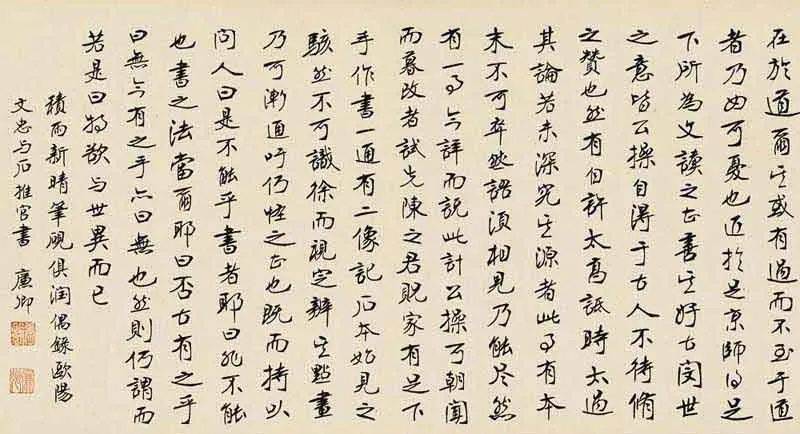 在於道爾其或有過而不至于道
者乃如可憂也近於足京師得足
下所為文讀之甚善其好古閔世
之意皆公操自得于古人不待脩
之贊也然有自許太高詆時太過
其論若未深究其源者此事有本
末不可卒然語須相見乃能盡然
有一事今詳而說此計公操可朝聞
而暮改者試先陳之君貺家有足下
手作書一通有二像記石本始見之
駭然不可識徐而視定辨其點畫
乃可漸通吁何怪之甚也既而持以
問人曰是不能乎書者耶曰非不能
也書之法當爾耶曰否古有之乎
曰無今有之乎亦曰無也然則何謂而
若是曰特欲与世異而已
積雨新晴筆硯俱潤偶錄歐陽
文忠与石推官書 廣卿